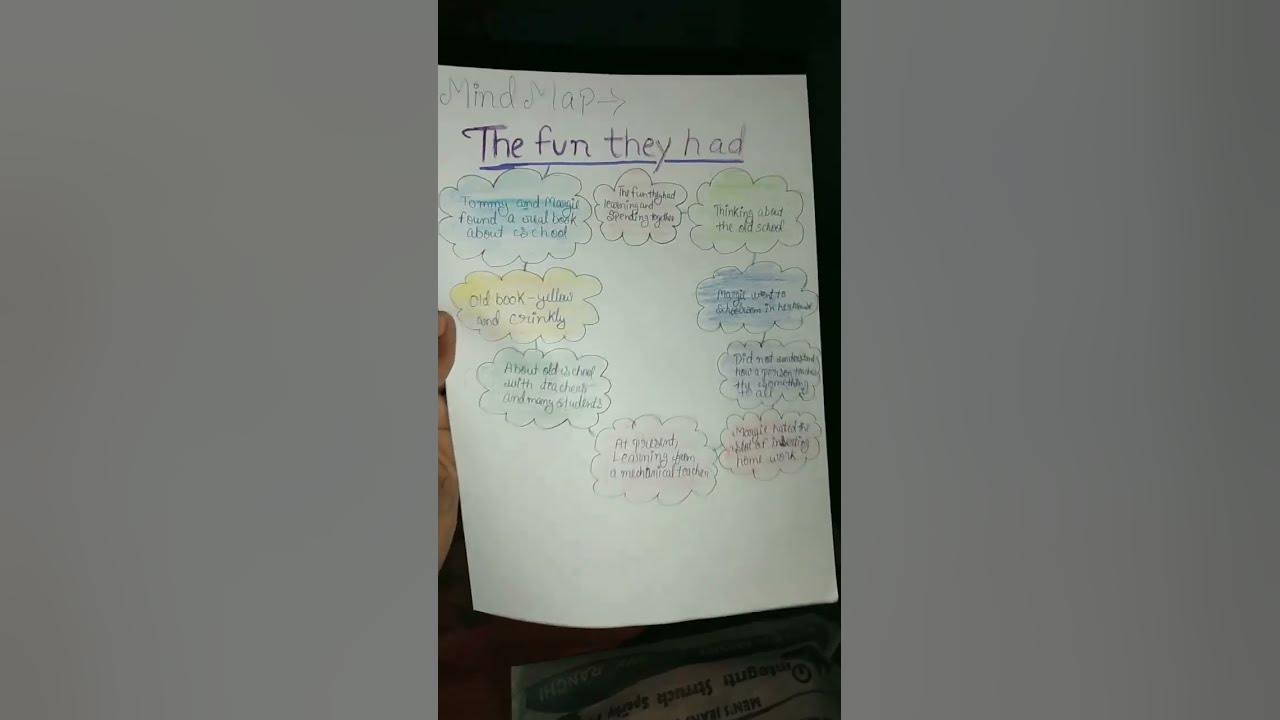 Mind Map→
The fun they had
Tommy and Margie
found a real book
about school
The fun they had
learning and
spending together
Thinking about
the old school
Old book - yellow
and crinkly
Margie went to
schoolroom in her
About old school
with teachers
and many students
Did not understand
how a person teaches
something
to all
At present,
Learning from
a mechanical teacher
Margie hated the
slot of inserting
home work
integriti Struck
MEN'S JEANS
RANCHI